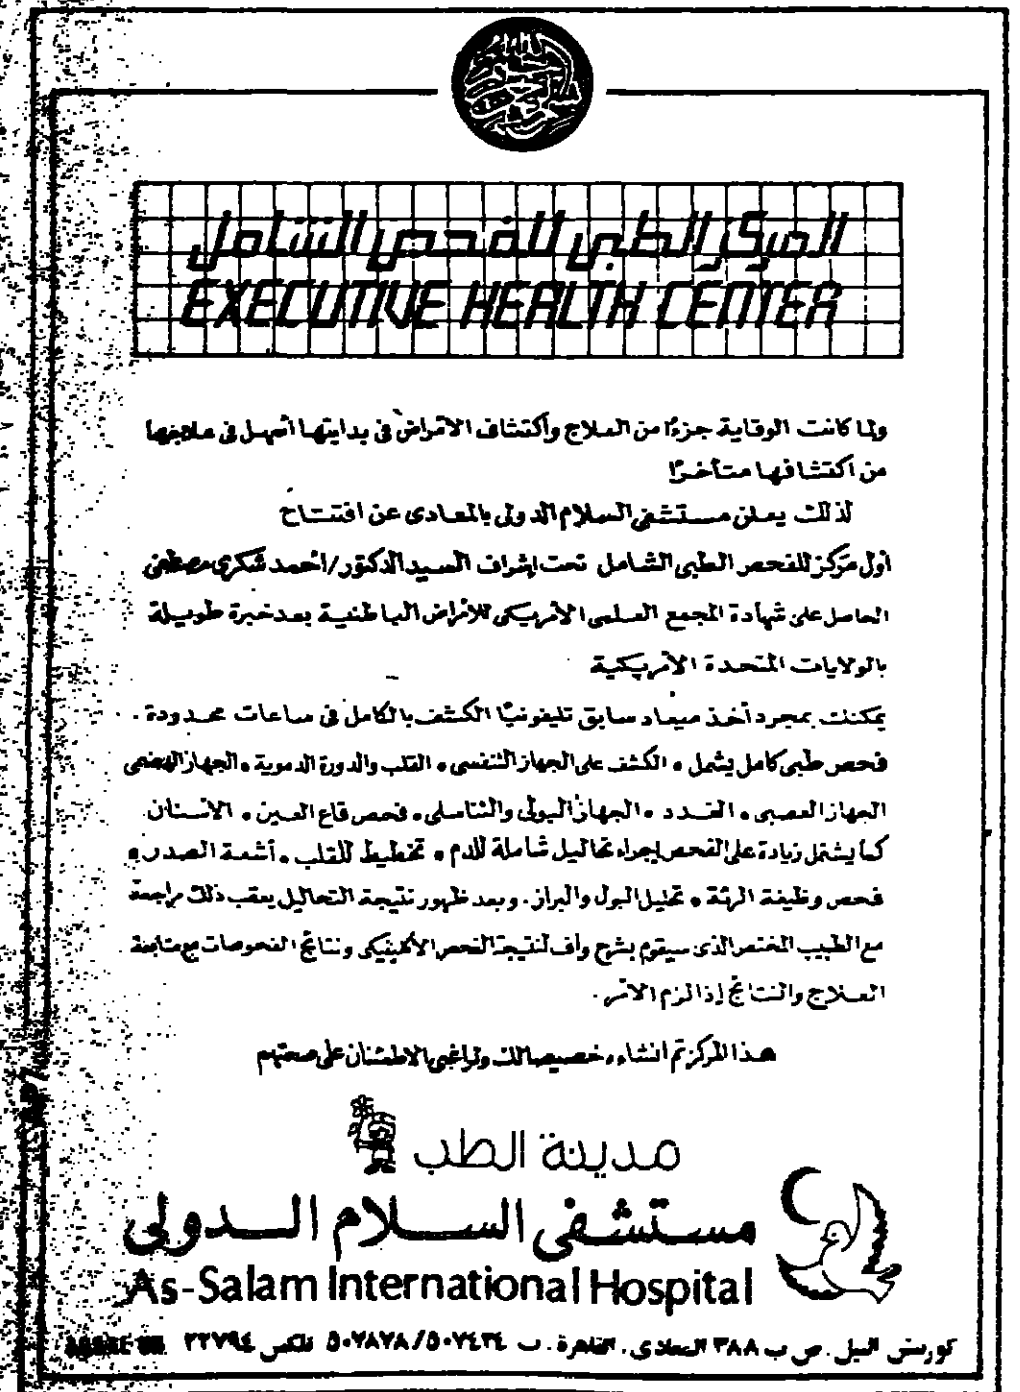 المركز الطبى للفحص الشامل
EXECUTIVE HEALTH CENTER
ولما كانت الوقاية جزءًا من العلاج وأكتشاف الأمراض فى بدايتها أسهل فى علاجها
من أكتشافها متأخرًا
لذلك يعلن مستشفى السلام الدولى بالمعادى عن افتتاح
أول مركز للفحص الطبى الشامل تحت إشراف السيد الدكتور/أحمد شكرى مصطفى
الحاصل على شهادة المجمع العلمى الأمريكى للأمراض الباطنية بعد خبرة طويلة
بالولايات المتحدة الأمريكية
يمكنك بمجرد أخذ ميعاد سابق تليفونيًا الكشف بالكامل فى ساعات محدودة.
فحص طبى كامل يشمل • الكشف على الجهاز التنفسى • القلب والدورة الدموية • الجهاز الهضمى
الجهاز العصبى • الغدد • الجهاز البولى والتناسلى • فحص قاع العين • الأسنان.
كما يشتمل زيادة على الفحص إجراء تحاليل شاملة للدم • تخطيط للقلب • أشعة الصدر •
فحص وظيفة الرئة • تحليل البول والبراز. وبعد ظهور نتيجة التحاليل يعقب ذلك مراجعة
مع الطبيب المختص الذى سيقوم بشرح واف لنتيجة الفحص الأكلينيكى ونتائج الفحوصات مع متابعة
العلاج والنتائج إذا لزم الأمر.
هذا المركز تم انشاءه خصيصا لك ولراغبى الاطمئنان على صحتهم
مدينة الطب
مستشفى السلام الدولى
As-Salam International Hospital
كورنيش النيل. ص ب ٣٨٨ المعادى. القاهرة. ت ٥٠٧٨٧٨/٥٠٧٤٢٤ تلكس ٢٢٧٩٤